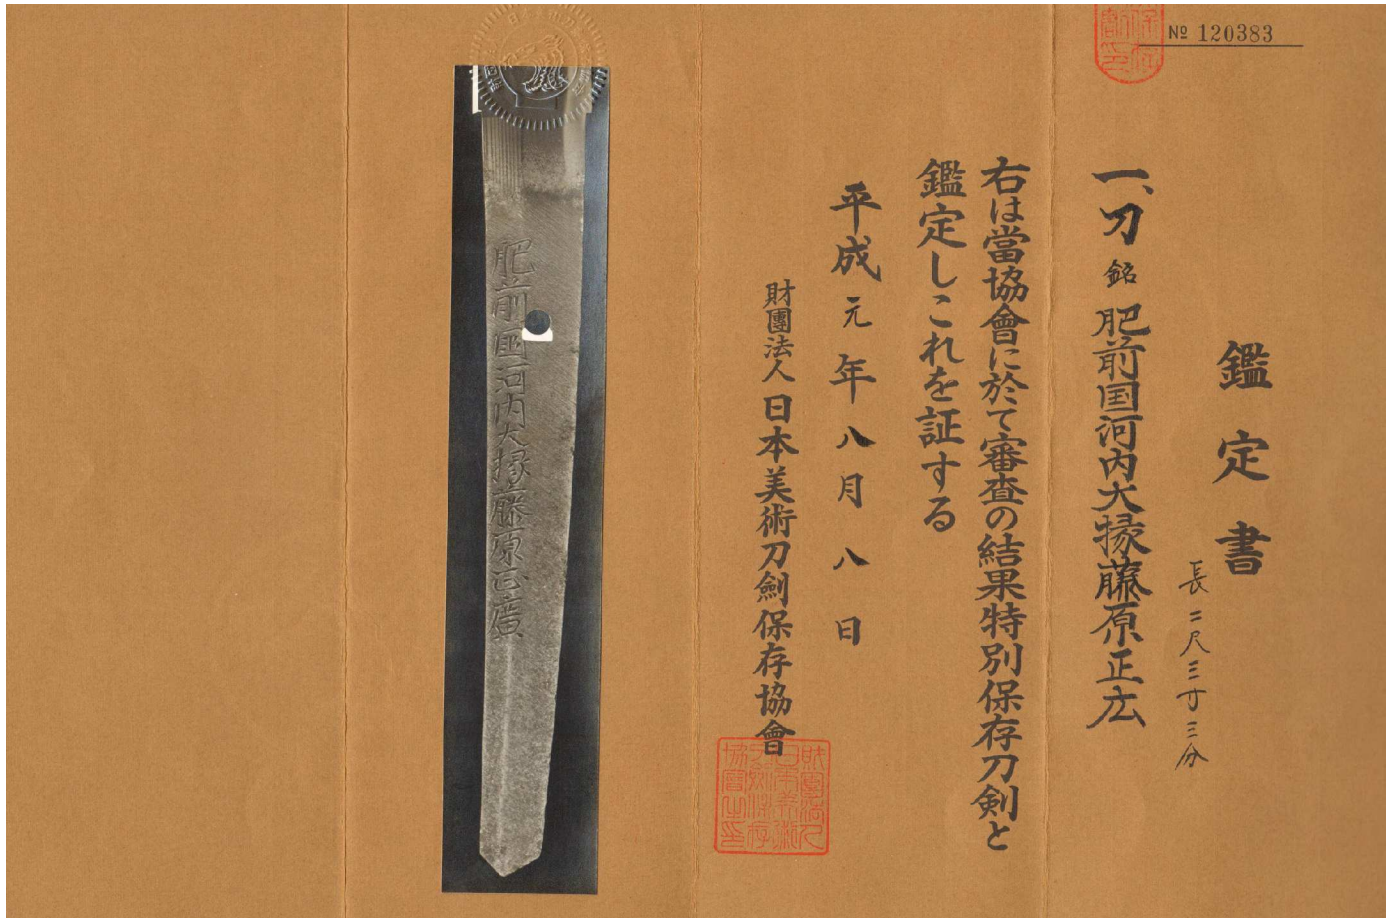 № 120383
鑑定書
長二尺三寸三分
一、刀 銘 肥前国河内大掾藤原正広
右は當協會に於て審査の結果特別保存刀剣と
鑑定しこれを証する
平成元年八月八日
財團法人日本美術刀劍保存協會
肥前國河内大掾藤原正廣